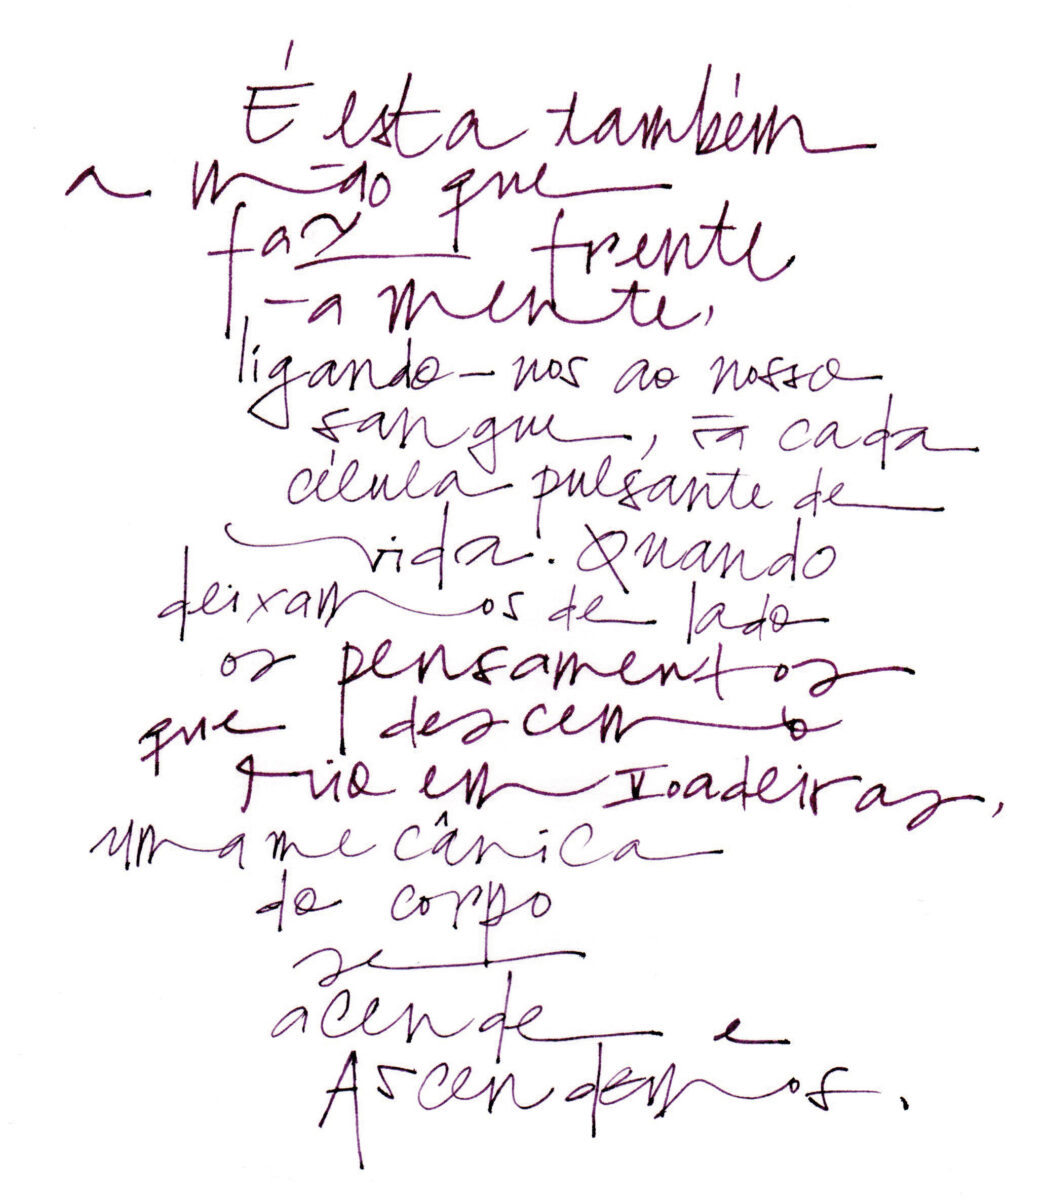 É esta também
a mão que
faz frente
-a mente,
ligando-nos ao nosso
sangue, -a cada
célula pulsante de
vida. Quando
deixamos de lado
os pensamentos
que descem o
rio em voadeiras,
uma mecânica
do corpo
se
acende e
Ascendemos.